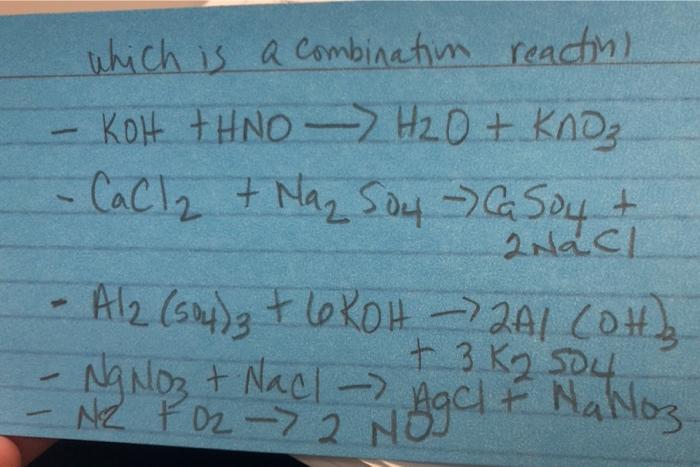 which is a combination reaction)
- KOH + HNO → H2O + KNO3
- CaCl2 + Na2 SO4 → CaSO4 +
2NaCl
- Al2 (SO4)3 + 6KOH → 2Al (OH)3
+ 3 K2 SO4
- NgNO3 + NaCl → AgCl + NaNO3
- N2 + O2 → 2 NO